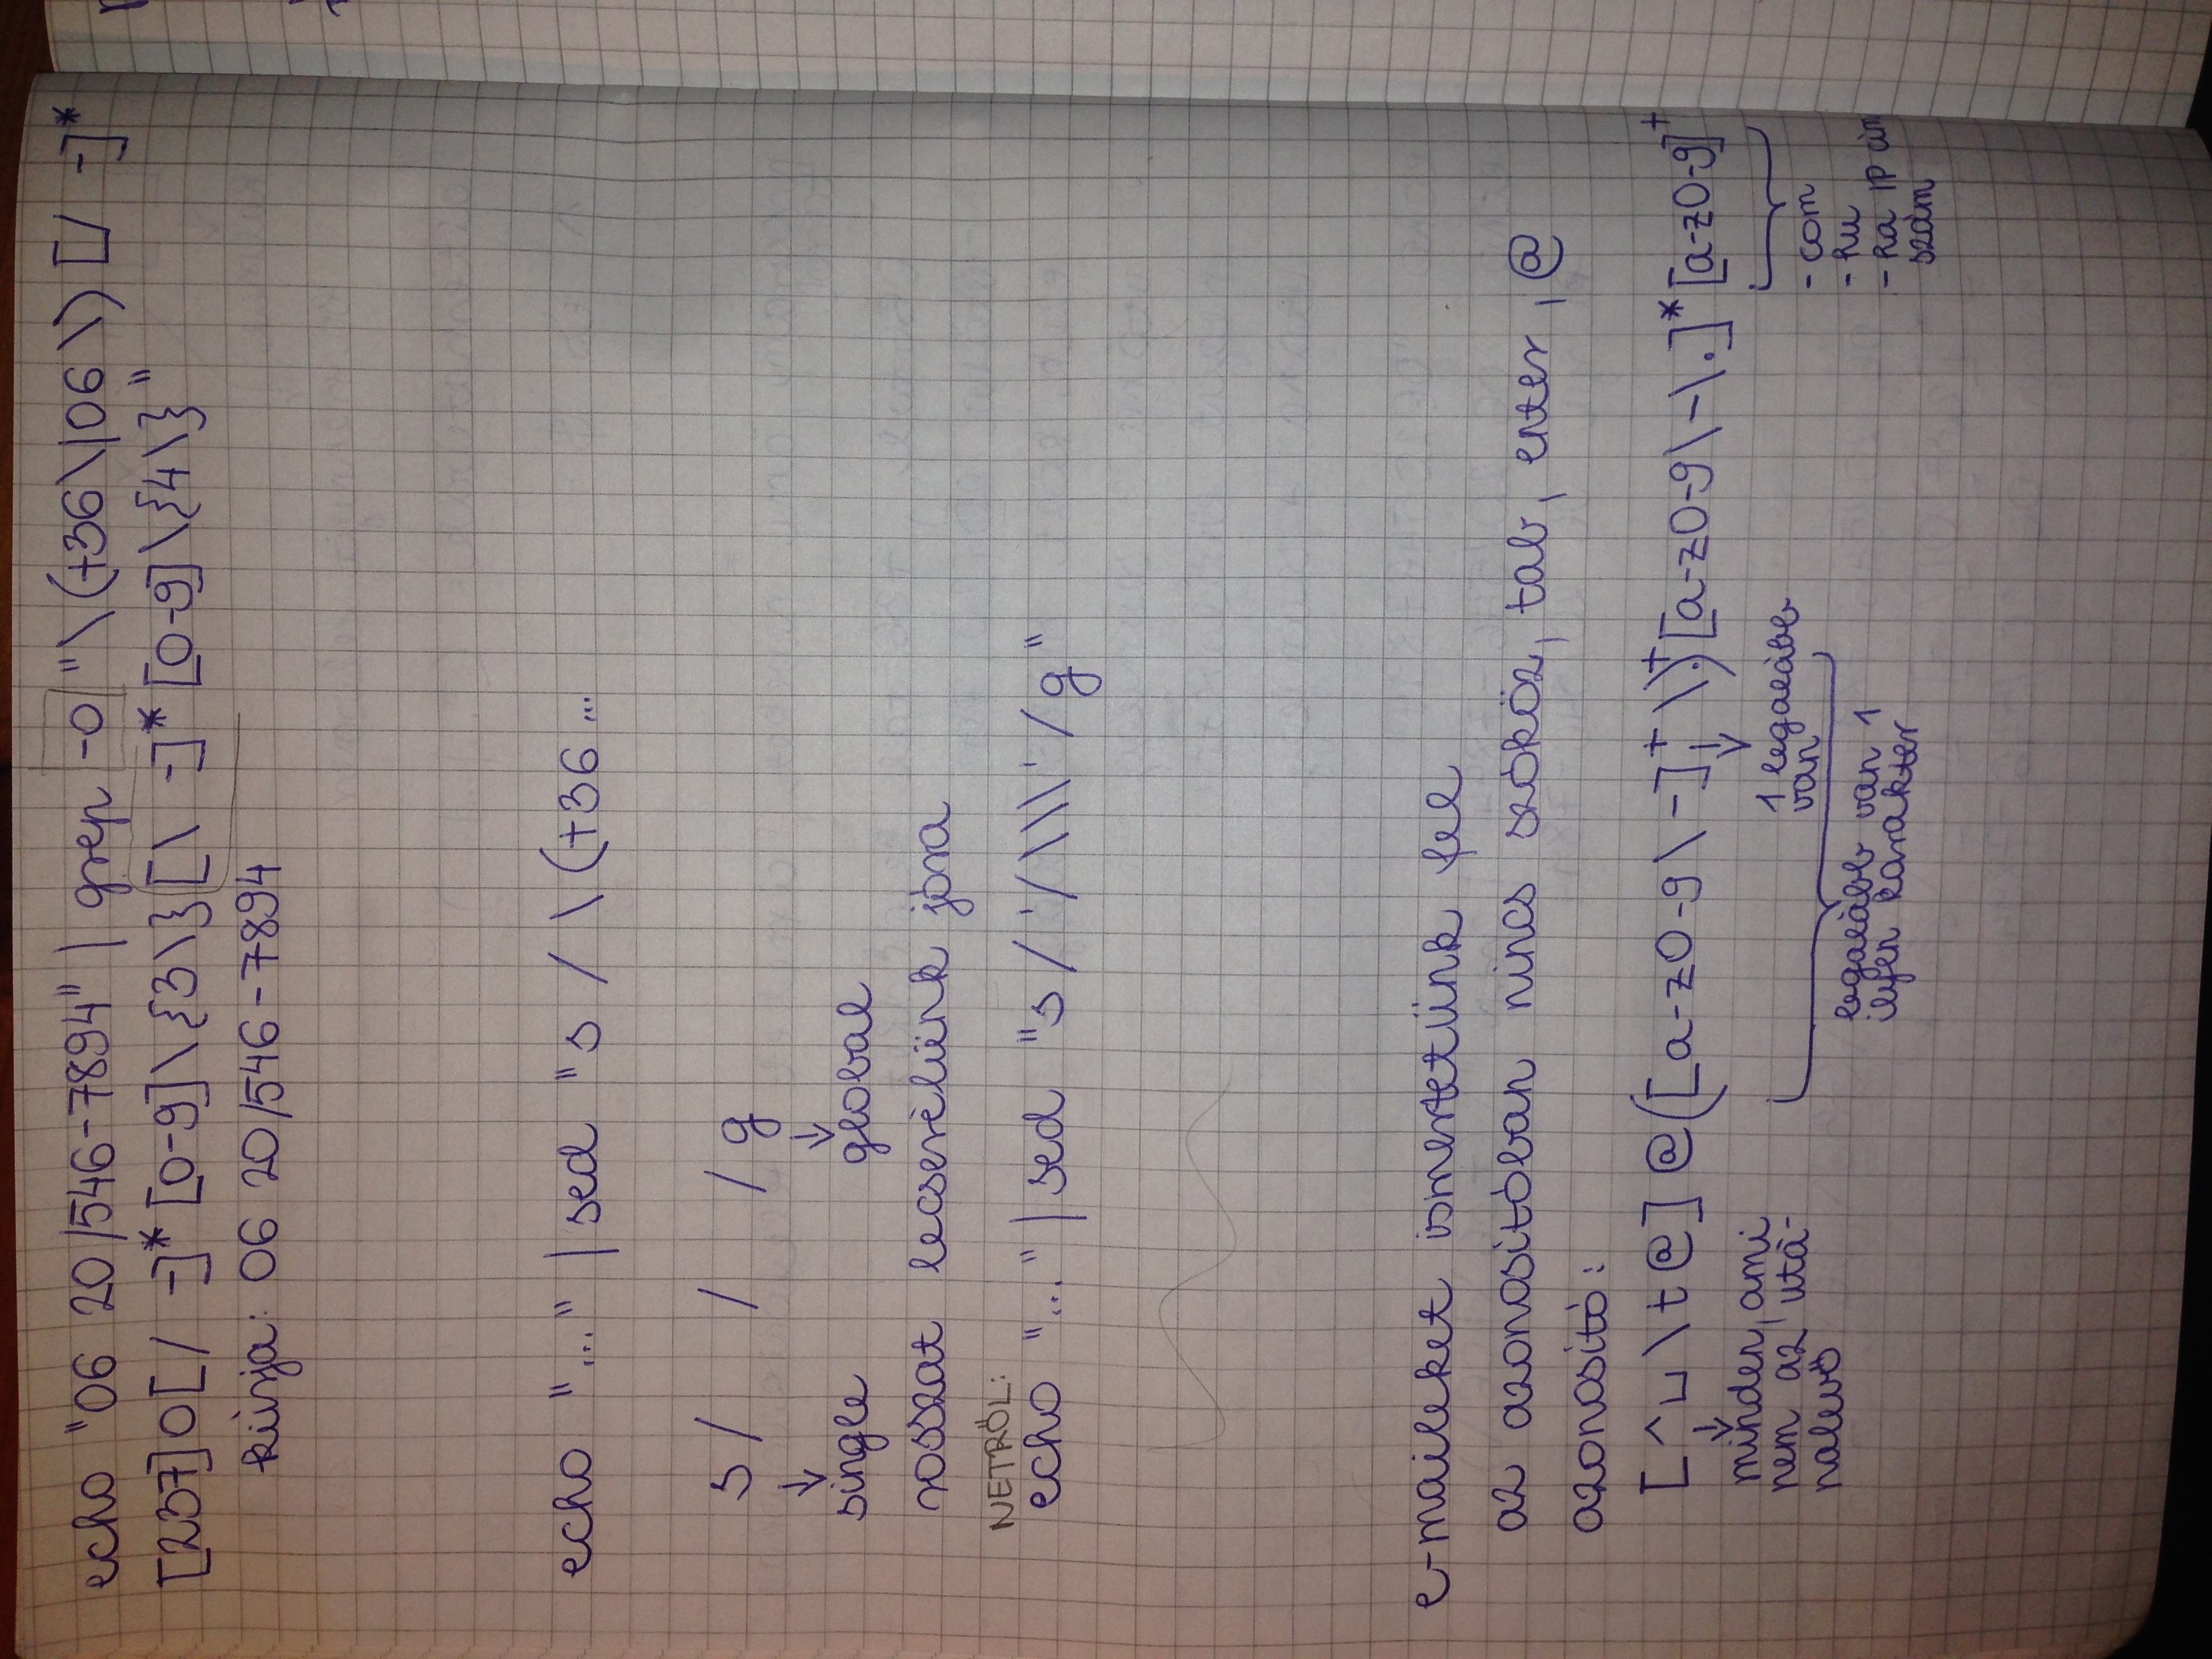 echo "06 20/546-7894" | grep -o "\(+36\|06\)[/ -]*
[237]0[/ -]*[0-9]\{3\}[\ -]*[0-9]\{4\}"
kiírja: 06 20/546-7894
echo "..." | sed "s/\(+36...
s/ / /g
↓ ↓
single global
rosszat lecserélünk jóra
NETRŐL:
echo "..." | sed "s/'/\\\'/g"
e-maileket ismertetünk fel
az azonosítóban nincs szóköz, tab, enter, @
azonosító:
[^␣\t@]@([a-z0-9\-]+\.)+[a-z0-9\-\.]*[a-z0-9]+
↓ ↓
minden, ami
nem az utá-
nalevő
1 legalább
van
legalább van 1
ilyen karakter
- com
- hu
- ha IP cím
szám